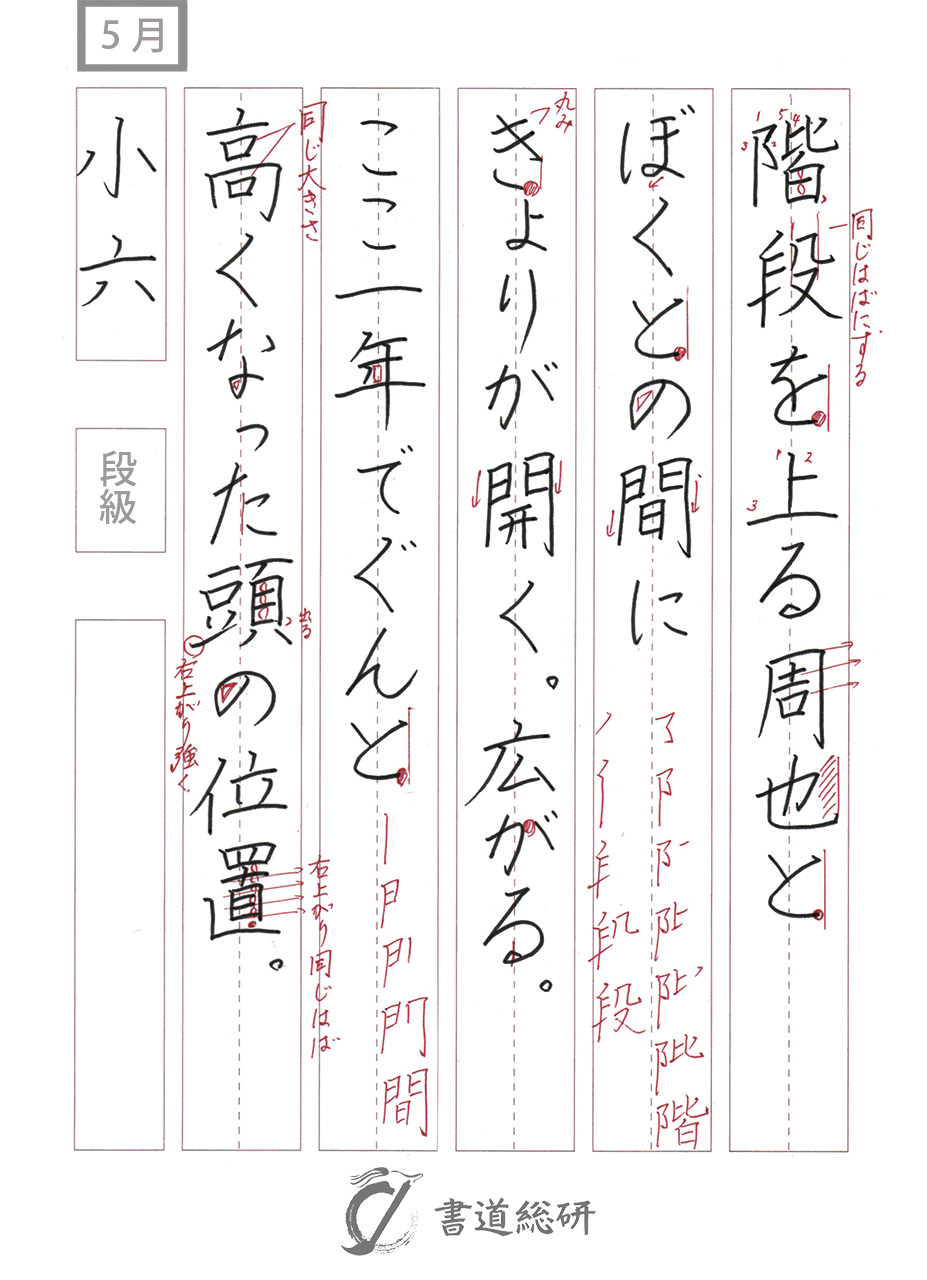 5月
階段を上る周也と
同じはばにする
ぼくとの間に
きょりが開く。広がる。
丸み
ここ一年でぐんと
高くなった頭の位置。
同じ大きさ
出る
右上がり強く
右上がり同じはば
小六
段級
書道総研